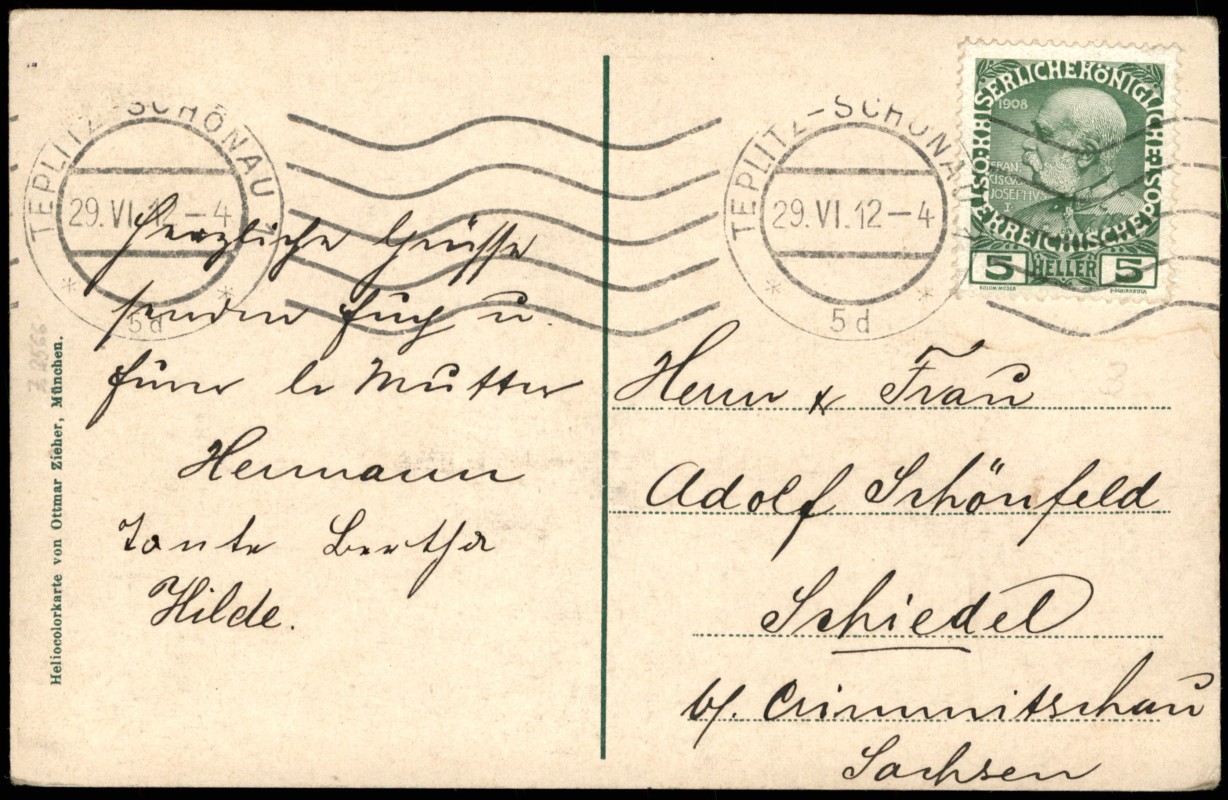 TEPLITZ-SCHÖNAU 1
29.VI.12-4
* 5d *
Herzliche Grüsse
senden Euch u.
Eurer lb Mutter
Hermann
Tante Bertha
Hilde.
Heliocolorkarte von Ottmar Zieher, München.
TEPLITZ-SCHÖNAU
29.VI.12-4
* 5d *
KAISERLICHE KÖNIGLICHE
ÖSTERREICHISCHE POST
1908
FRAN
CISCVS
JOSEPHVS
I
5 HELLER 5
Herrn & Frau
Adolf Schönfeld
Schiedel
b/. Crimmitschau
Sachsen